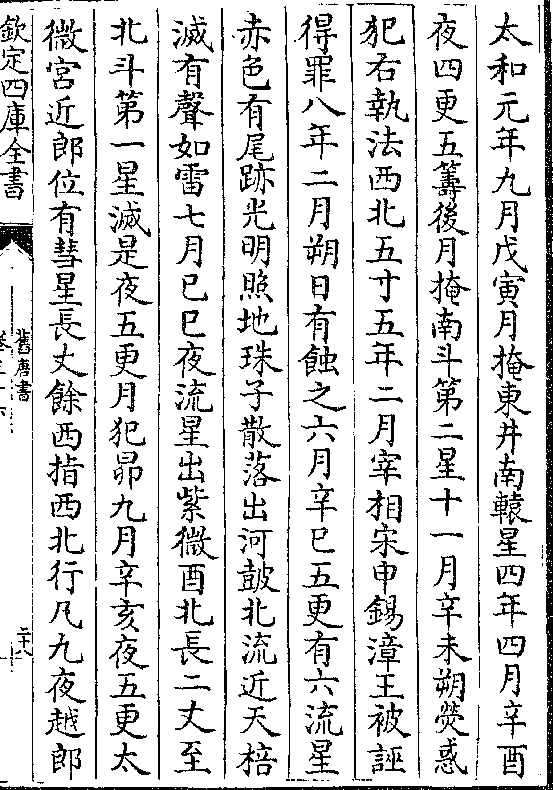 太和元年九月戊寅月掩東井南轅星四年四月辛酉
夜四更五籌後月掩南斗第二星十一月辛未朔熒惑
犯右執法西北五寸五年二月宰相宋申錫漳王被誣
得罪八年二月朔日有蝕之六月辛巳五更有六流星
赤色有尾跡光明照地珠子散落出河鼓北流近天棓
滅有聲如雷七月巳巳夜流星出紫微酉北長二丈至
北斗第一星滅是夜五更月犯昴九月辛亥夜五更太
微宮近郎位有彗星長丈餘西指西北行凡九夜越郎
欽定四庫全書
舊唐書
二十八